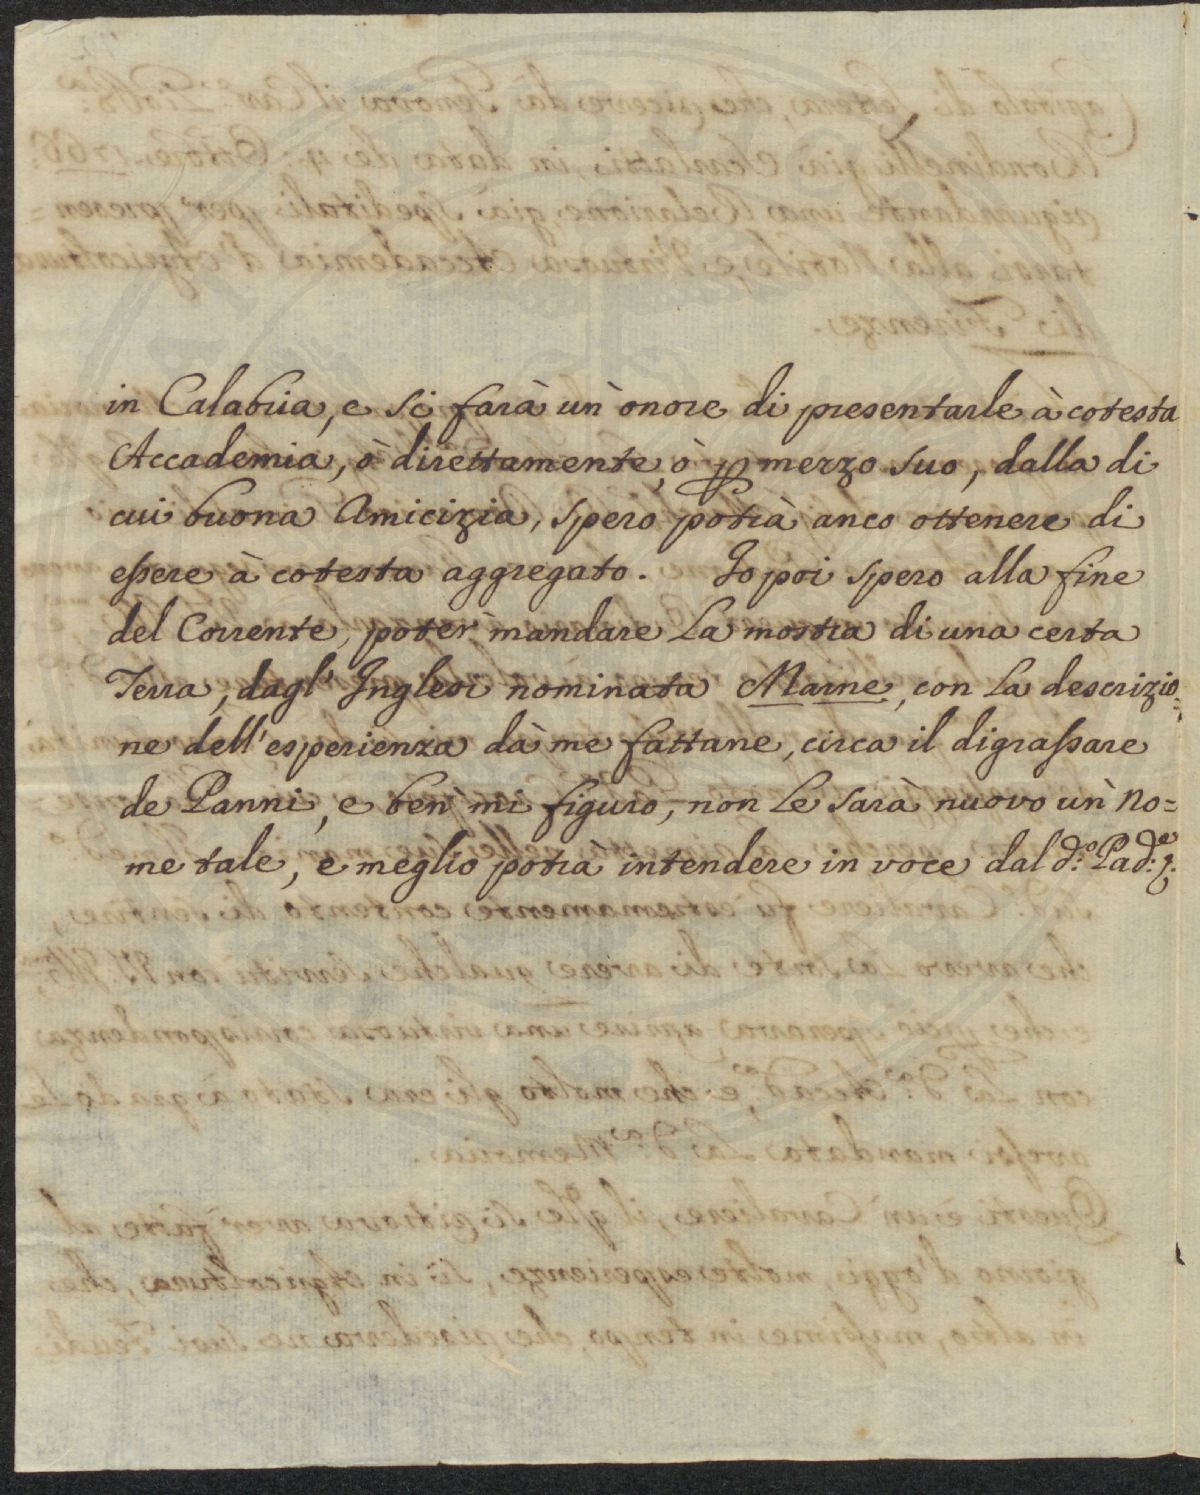 in Calabria, e si farà un' onore di presentarle à cotesta
Accademia, ò direttamente, ò p mezzo suo, dalla di
cui buona Amicizia, spero potrà anco ottenere di
essere à cotesta aggregato. Io poi spero alla fine
del Corrente, poter' mandare La mostra di una certa
Terra, dagl' Inglesi nominata Marne, con La descrizio=
ne dell'esperienza dà me fattane, circa il digrassare
de Panni, e ben' mi figuro, non Le sarà nuovo un' No=
me tale, e meglio potrà intendere in voce dal d.º Pad.e